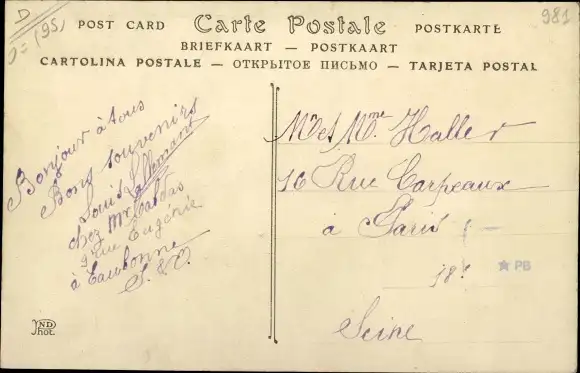 D
(95)
981
POST CARD Carte Postale POSTKARTE
BRIEFKAART — POSTKAART
CARTOLINA POSTALE — ОТКРЫТОЕ ПИСЬМО — TARJETA POSTAL
Bonjour à tous
Bons souvenirs
Louis Lallemant
chez Mr
rue Eugénie
à Eaubonne
S. & O.
Mr et Mme Haller
16 Rue Carpeaux
à Paris
18e
Seine
PB
ND
Phot.